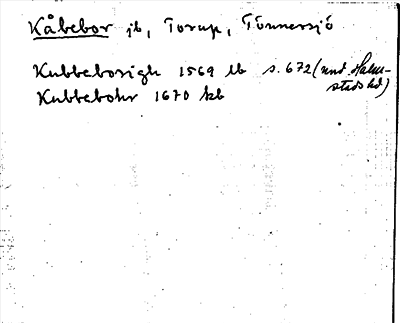 Kåbebor jb, Torup, Tönnersjö
Kubbeborigh 1569 lb s. 672 (und. Halm-
stads hd)
Kubbebohr 1670 kb